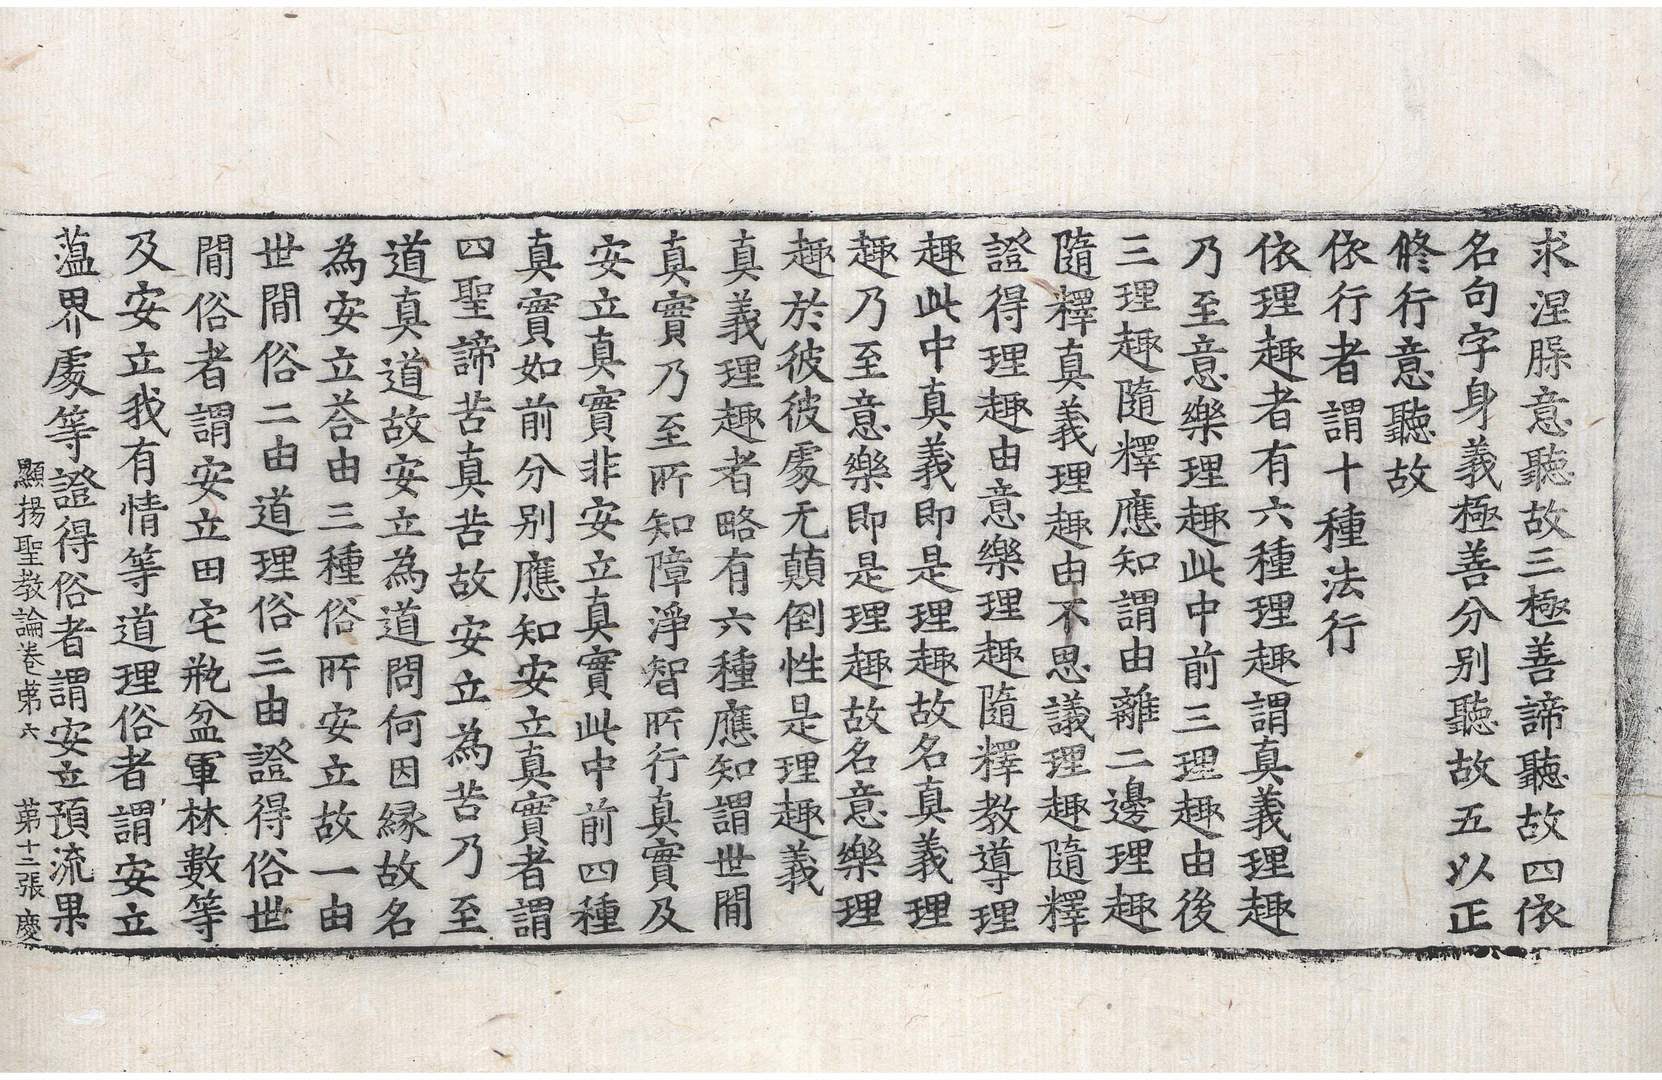 求涅槃意聽故三極善諦聽故四依
名句字身義極善分别聽故五以正
修行意聽故
依行者謂十種法行
依理趣者有六種理趣謂真義理趣
乃至意樂理趣此中前三理趣由後
三理趣隨釋應知謂由離二邊理趣
隨釋真義理趣由不思議理趣隨釋
證得理趣由意樂理趣隨釋教導理
趣此中真義即是理趣故名真義理
趣乃至意樂即是理趣故名意樂理
趣於彼彼處无顛倒性是理趣義
真義理趣者略有六種應知謂世閒
真實乃至所知障淨智所行真實及
安立真實非安立真實此中前四種
真實如前分别應知安立真實者謂
四聖諦苦真苦故安立為苦乃至
道真道故安立為道問何因縁故名
為安立荅由三種俗所安立故一由
世閒俗二由道理俗三由證得俗世
閒俗者謂安立田宅瓶盆軍林數等
及安立我有情等道理俗者謂安立
薀界處等證得俗者謂安立預流果
顯揚聖教論卷第六 第十二張 慶